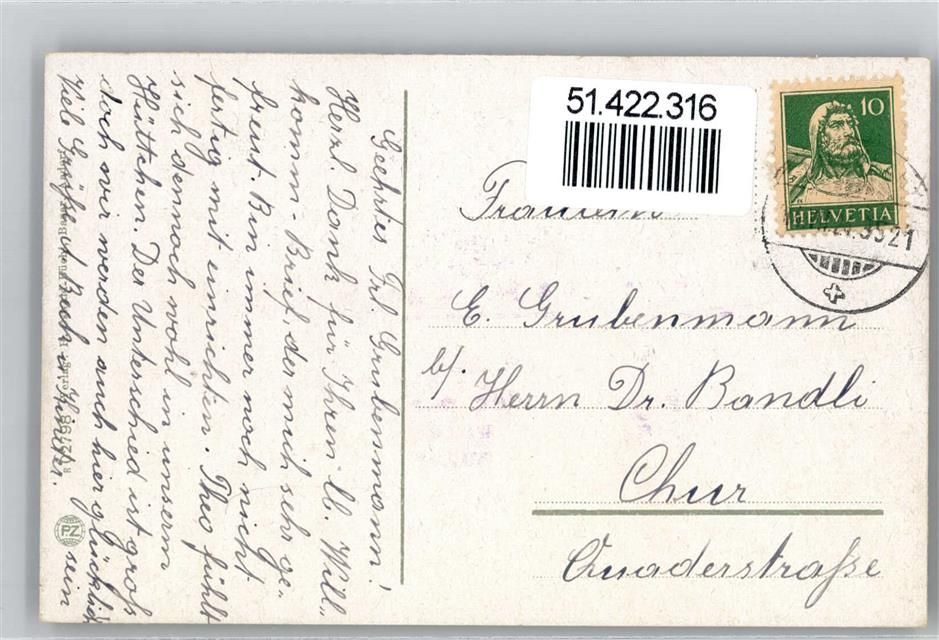 Geehrtes Frl. Grubenmann!
Herzl. Dank für Ihren lb. Will-
komm-Brief, der mich sehr ge-
freut. Bin immer noch nicht
fertig mit einrichten. Theo fühlt
sich demnach wohl in unserm
Hüttchen. Der Unterschied ist gross
doch wir werden auch hier glücklich
sein
Viele Grüsse
51.422.316
10
HELVETIA
21
Fräulein
E. Grubenmann
b/. Herrn Dr. Bandli
Chur
Quaderstraße
PZ